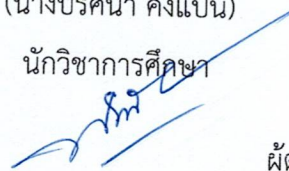 (นางปรศนา คงแป้น)
นักวิชาการศึกษา